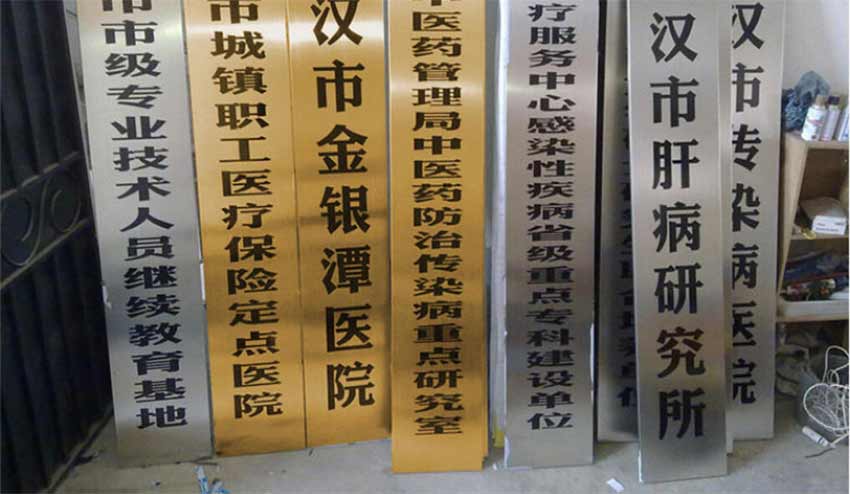 市市级专业技术人员继续教育基地
市城镇职工医疗保险定点医院
汉市金银潭医院
中医药管理局中医药防治传染病重点研究室
疗服务中心感染性疾病省级重点专科建设单位
汉市肝病研究所
汉市传染病医院